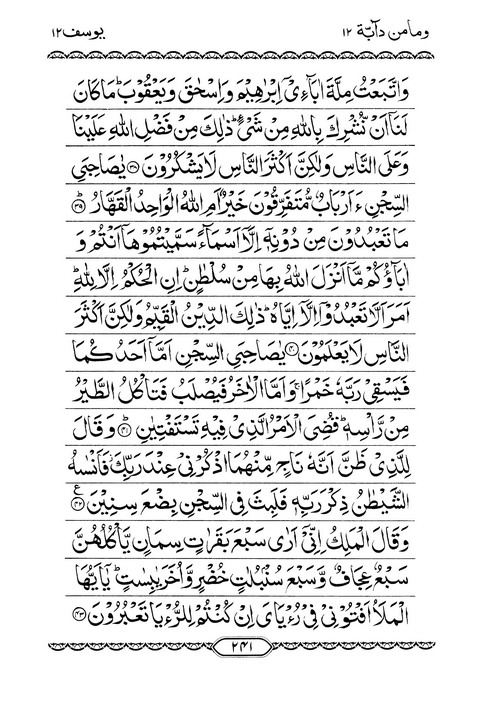 يوسف ١٢
ومامن دآبة ١٢
وَاتَّبَعْتُ مِلَّةَ اٰبَآءِیْۤ اِبْرٰهِیْمَ وَاِسْحٰقَ وَیَعْقُوْبَؕ مَا كَانَ
لَنَاۤ اَنْ نُّشْرِكَ بِاللّٰهِ مِنْ شَیْءٍؕ ذٰلِكَ مِنْ فَضْلِ اللّٰهِ عَلَیْنَا
وَعَلَی النَّاسِ وَلٰكِنَّ اَكْثَرَ النَّاسِ لَا یَشْكُرُوْنَ ﴿۳۸﴾ یٰصَاحِبَیِ
السِّجْنِ ءَاَرْبَابٌ مُّتَفَرِّقُوْنَ خَیْرٌ اَمِ اللّٰهُ الْوَاحِدُ الْقَهَّارُؕ ﴿۳۹﴾
مَا تَعْبُدُوْنَ مِنْ دُوْنِهٖۤ اِلَّاۤ اَسْمَآءً سَمَّیْتُمُوْهَاۤ اَنْتُمْ وَ
اٰبَآؤُكُمْ مَّاۤ اَنْزَلَ اللّٰهُ بِهَا مِنْ سُلْطٰنٍؕ اِنِ الْحُكْمُ اِلَّا لِلّٰهِؕ
اَمَرَ اَلَّا تَعْبُدُوْۤا اِلَّاۤ اِیَّاهُؕ ذٰلِكَ الدِّیْنُ الْقَیِّمُ وَلٰكِنَّ اَكْثَرَ
النَّاسِ لَا یَعْلَمُوْنَ ﴿۴۰﴾ یٰصَاحِبَیِ السِّجْنِ اَمَّاۤ اَحَدُكُمَا
فَیَسْقِیْ رَبَّهٗ خَمْرًاۚ وَاَمَّا الْاٰخَرُ فَیُصْلَبُ فَتَاْكُلُ الطَّیْرُ
مِنْ رَّاْسِهٖؕ قُضِیَ الْاَمْرُ الَّذِیْ فِیْهِ تَسْتَفْتِیٰنِؕ ﴿۴۱﴾ وَقَالَ
لِلَّذِیْ ظَنَّ اَنَّهٗ نَاجٍ مِّنْهُمَا اذْكُرْنِیْ عِنْدَ رَبِّكَؗ فَاَنْسٰىهُ
الشَّیْطٰنُ ذِكْرَ رَبِّهٖ فَلَبِثَ فِی السِّجْنِ بِضْعَ سِنِیْنَ ﴿۴۲﴾ ع
وَقَالَ الْمَلِكُ اِنِّیْۤ اَرٰی سَبْعَ بَقَرٰتٍ سِمَانٍ یَّاْكُلُهُنَّ
سَبْعٌ عِجَافٌ وَّسَبْعَ سُنْۢبُلٰتٍ خُضْرٍ وَّاُخَرَ یٰبِسٰتٍؕ یٰۤاَیُّهَا
الْمَلَاُ اَفْتُوْنِیْ فِیْ رُءْیَایَ اِنْ كُنْتُمْ لِلرُّءْیَا تَعْبُرُوْنَ ﴿۴۳﴾
۲۴۱